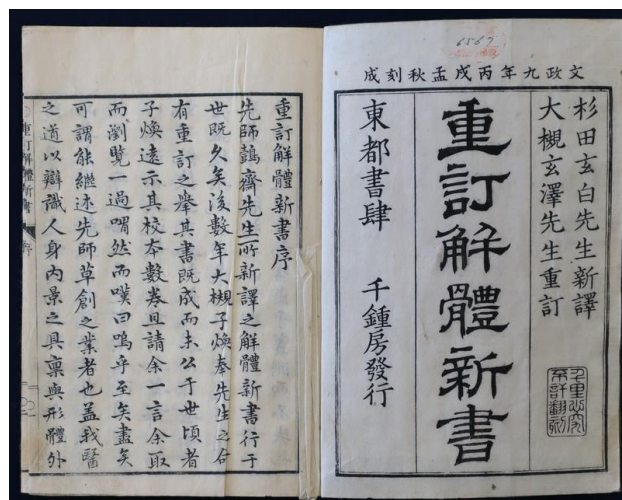 6567
文政九年丙戌孟秋刻成
杉田玄白先生新譯
大槻玄澤先生重訂
重訂解體新書
東都書肆 千鍾房發行
千里必究
不許翻刻
重訂解體新書序
先師鷧齋先生所新譯之解體新書行于
世既久矣後數年大槻子煥奉先生之命
有重訂之擧其書既成而未公于世頃者
子煥遠示其校本數卷且請余一言余取
而瀏覽一過喟然而嘆曰嗚乎至矣盡矣
可謂能繼述先師草創之業者也蓋我醫
之道以辯識人身內景之具稟與形體外
重訂解體新書 序